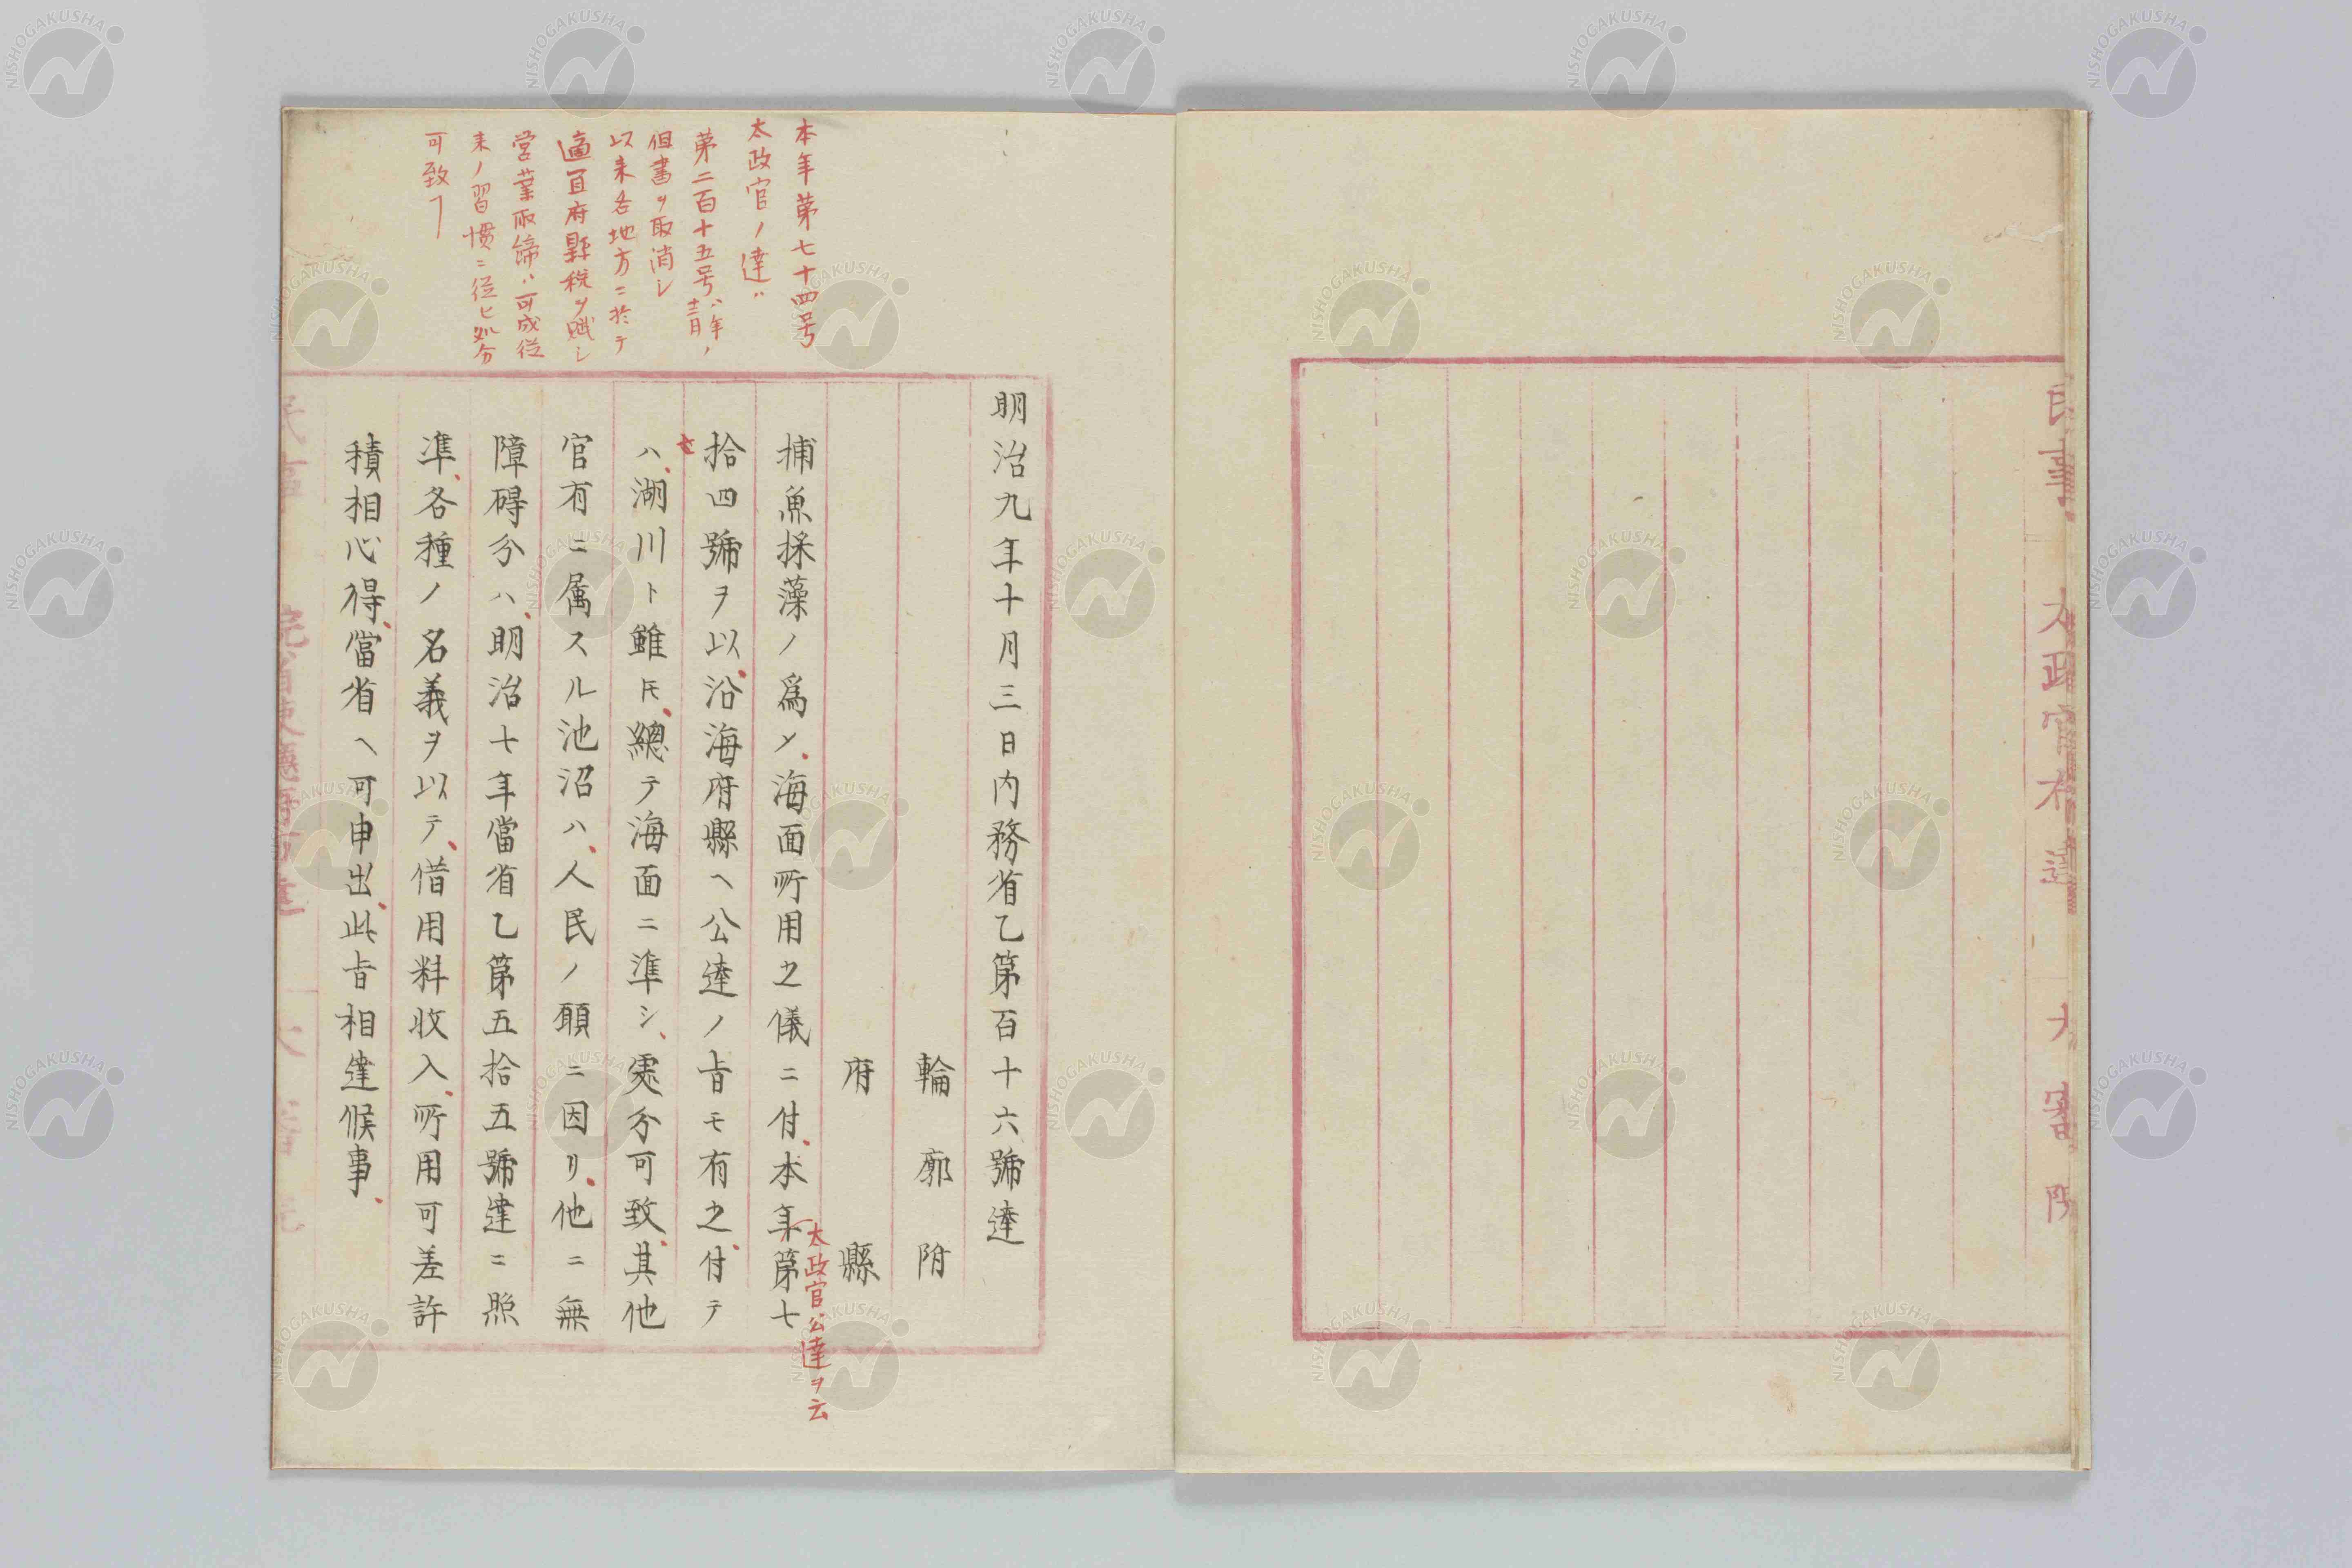 民事
太政官布達
大審院
明治九年十月三日内務省乙第百十六號達
輪廓附
府縣
捕魚採藻ノ爲メ海面所用之儀ニ付本年第七
太政官公達ヲ云
拾四號ヲ以沿海府縣ヘ公達ノ旨モ有之付テ
ハ湖川ト雖𪜈總テ海面ニ準シ處分可致其他
官有ニ属スル池沼ハ人民ノ願ニ因リ他ニ無
障碍分ハ明治七年當省乙第五拾五號達ニ照
凖各種ノ名義ヲ以テ借用料收入所用可差許
積相心得當省ヘ可申出此旨相達候事
本年第七十四号
太政官ノ達ハ
第二百十五号八年十二月ノ
但書ヲ取消シ
以来各地方ニ於テ
適宜府縣税ヲ賦シ
営業取締ハ可成従
来ノ習慣ニ従ヒ処分
可致ヿ
民事
院省使廳府縣達
大審院
NISHOGAKUSHA